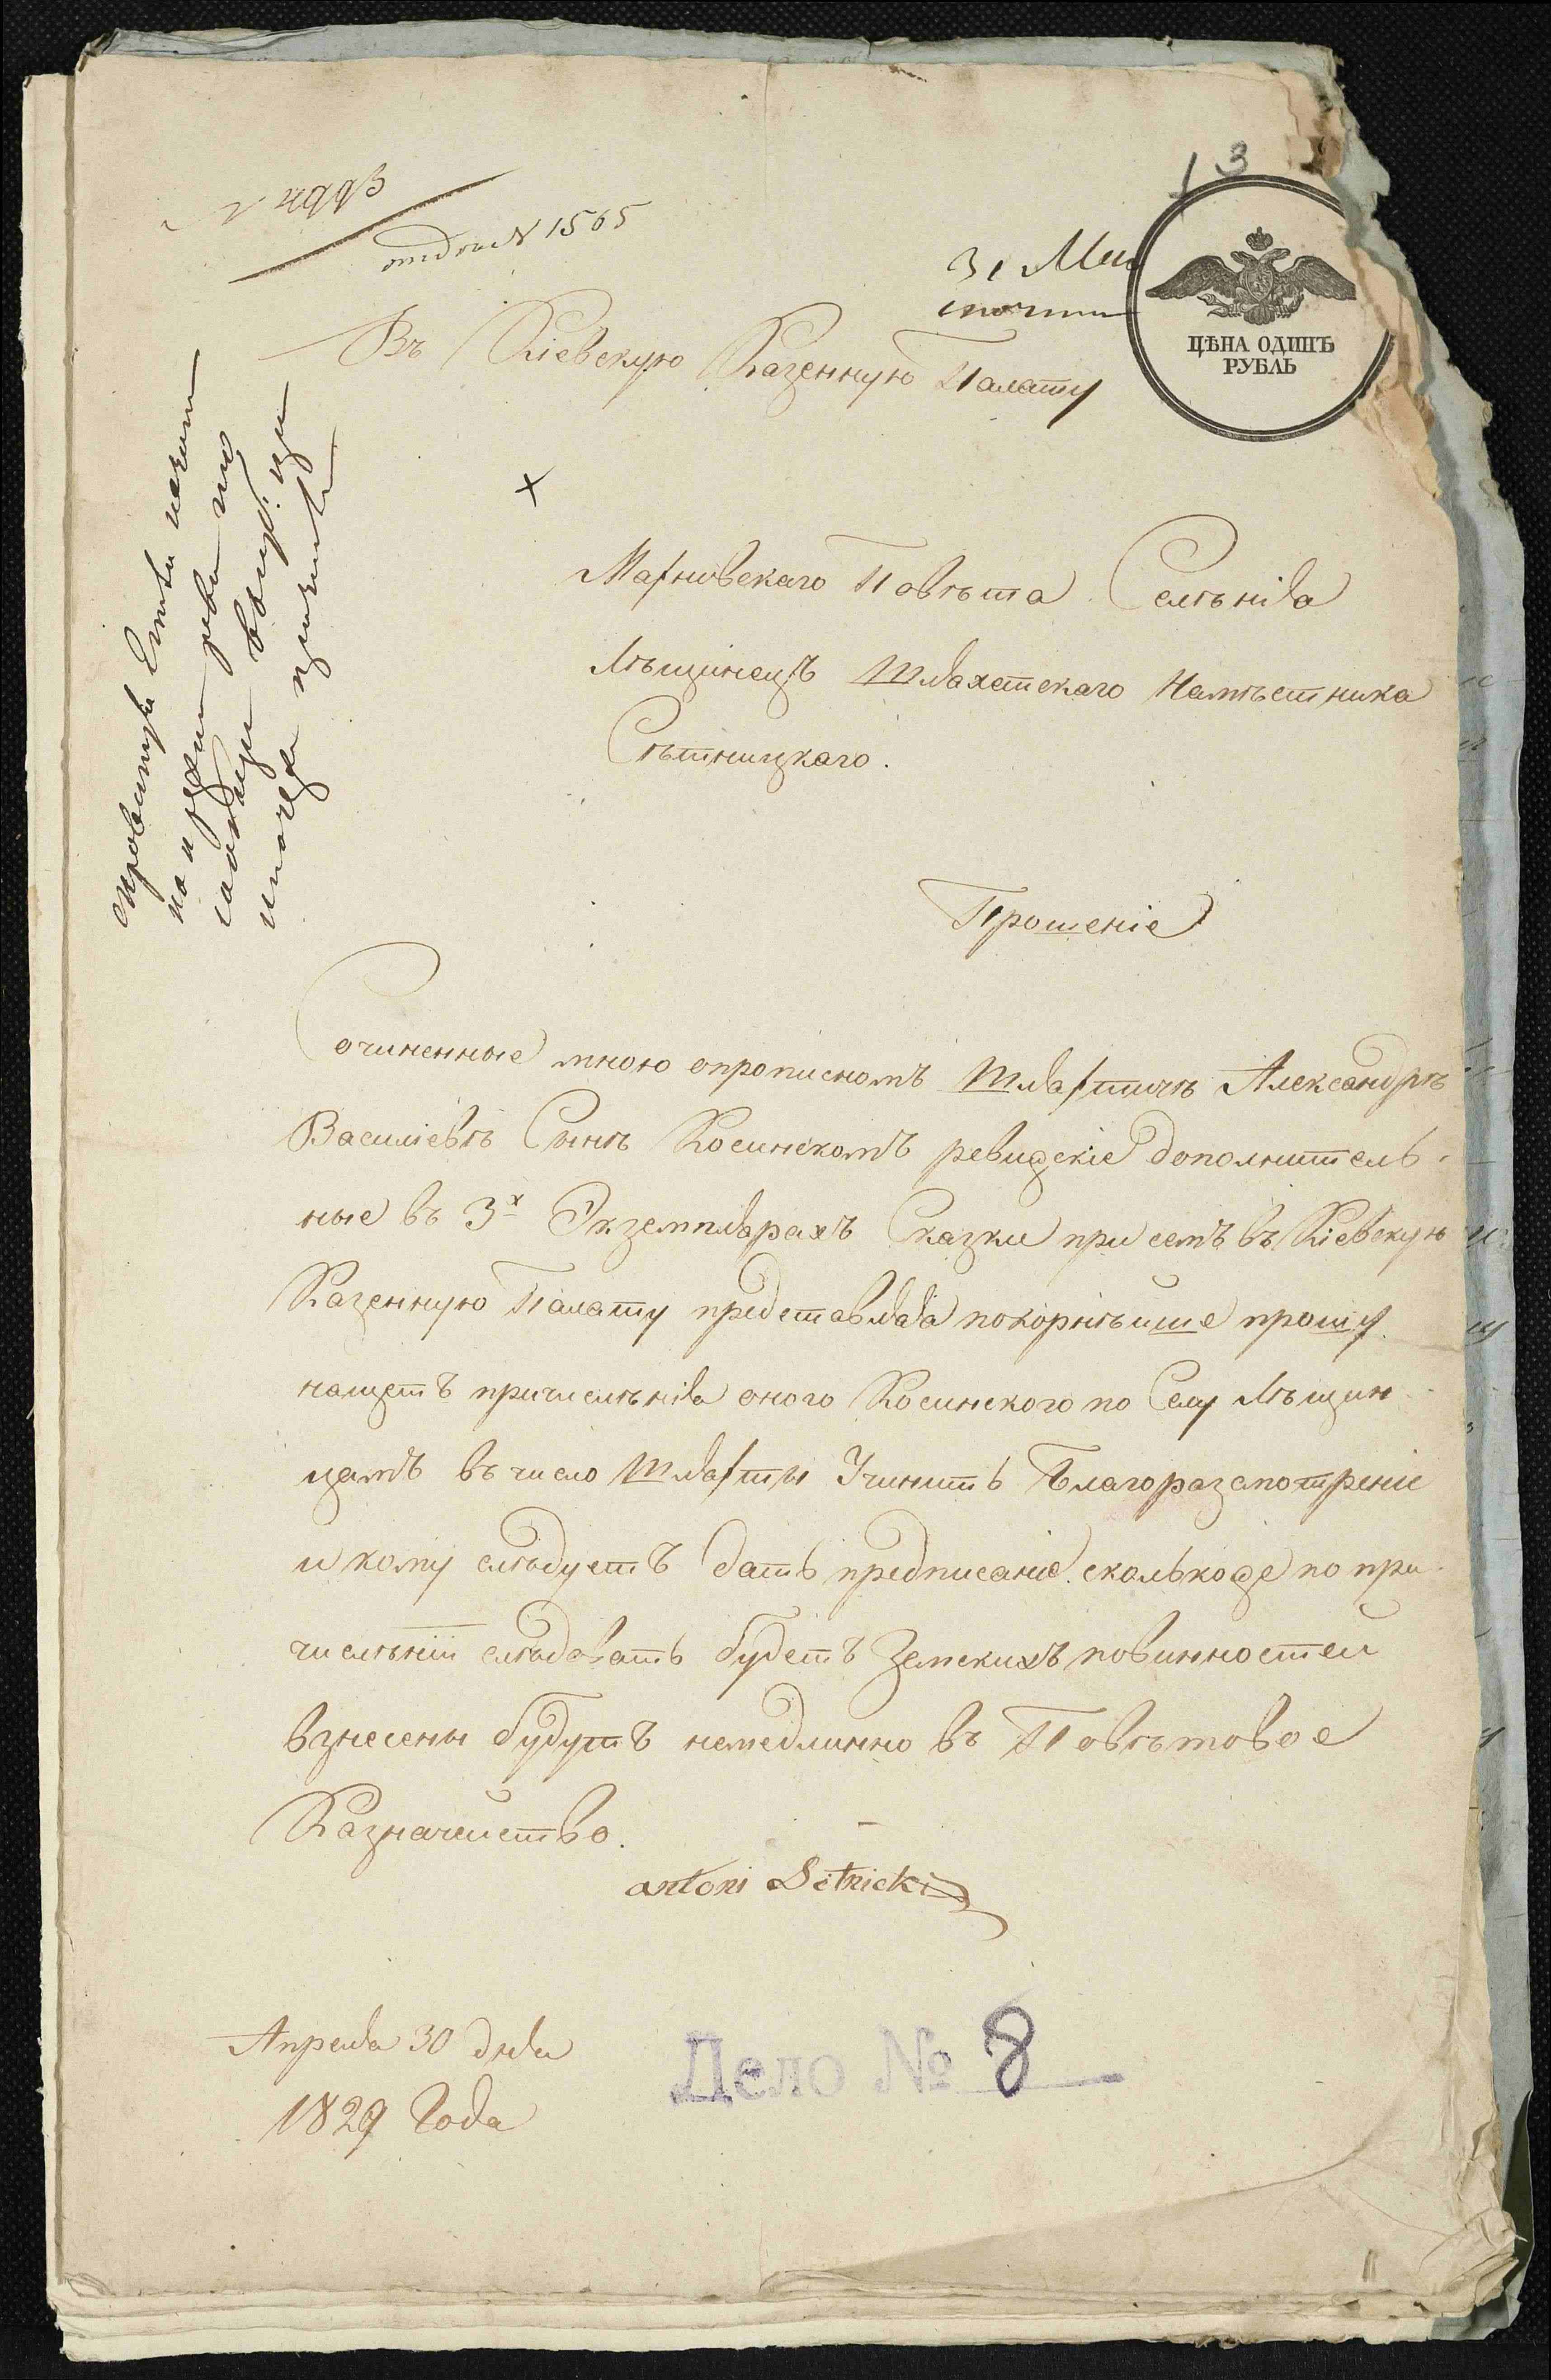 13
№ 4993
отдел N 1565
31 Маи
ЦѢНА ОДИНЪ
РУБЛЬ
Въ Кіевскую Казенную Палату
Махновскаго Повѣта Селѣнія
Лѣщинецъ Шляхетскаго Намѣстника
Сѣтницкаго.
Прошеніе
Сочиненные мною опрописномъ Шляхтичѣ Александрѣ
Василіевѣ Сынѣ Косинскомъ ревизскіе дополнитель-
ные въ 3х Экземплярахъ Сказки при семъ въ Кіевскую
Казенную Палату представляя покорнѣише прошу
нащетъ причислѣнія оного Косинского по Селу Лѣщин-
цамъ въ число Шляхты Учинить Благоразсмотреніе
и кому слѣдуетъ дать предписаніе. сколькоже по при-
числѣніи слѣдовать будетъ Земскихъ повинностей
взнесены будутъ немедлинно въ Повѣтовое
Казначейство.
antoni Sitnicki
Апреля 30 дня
1829 Года
Дело № 8